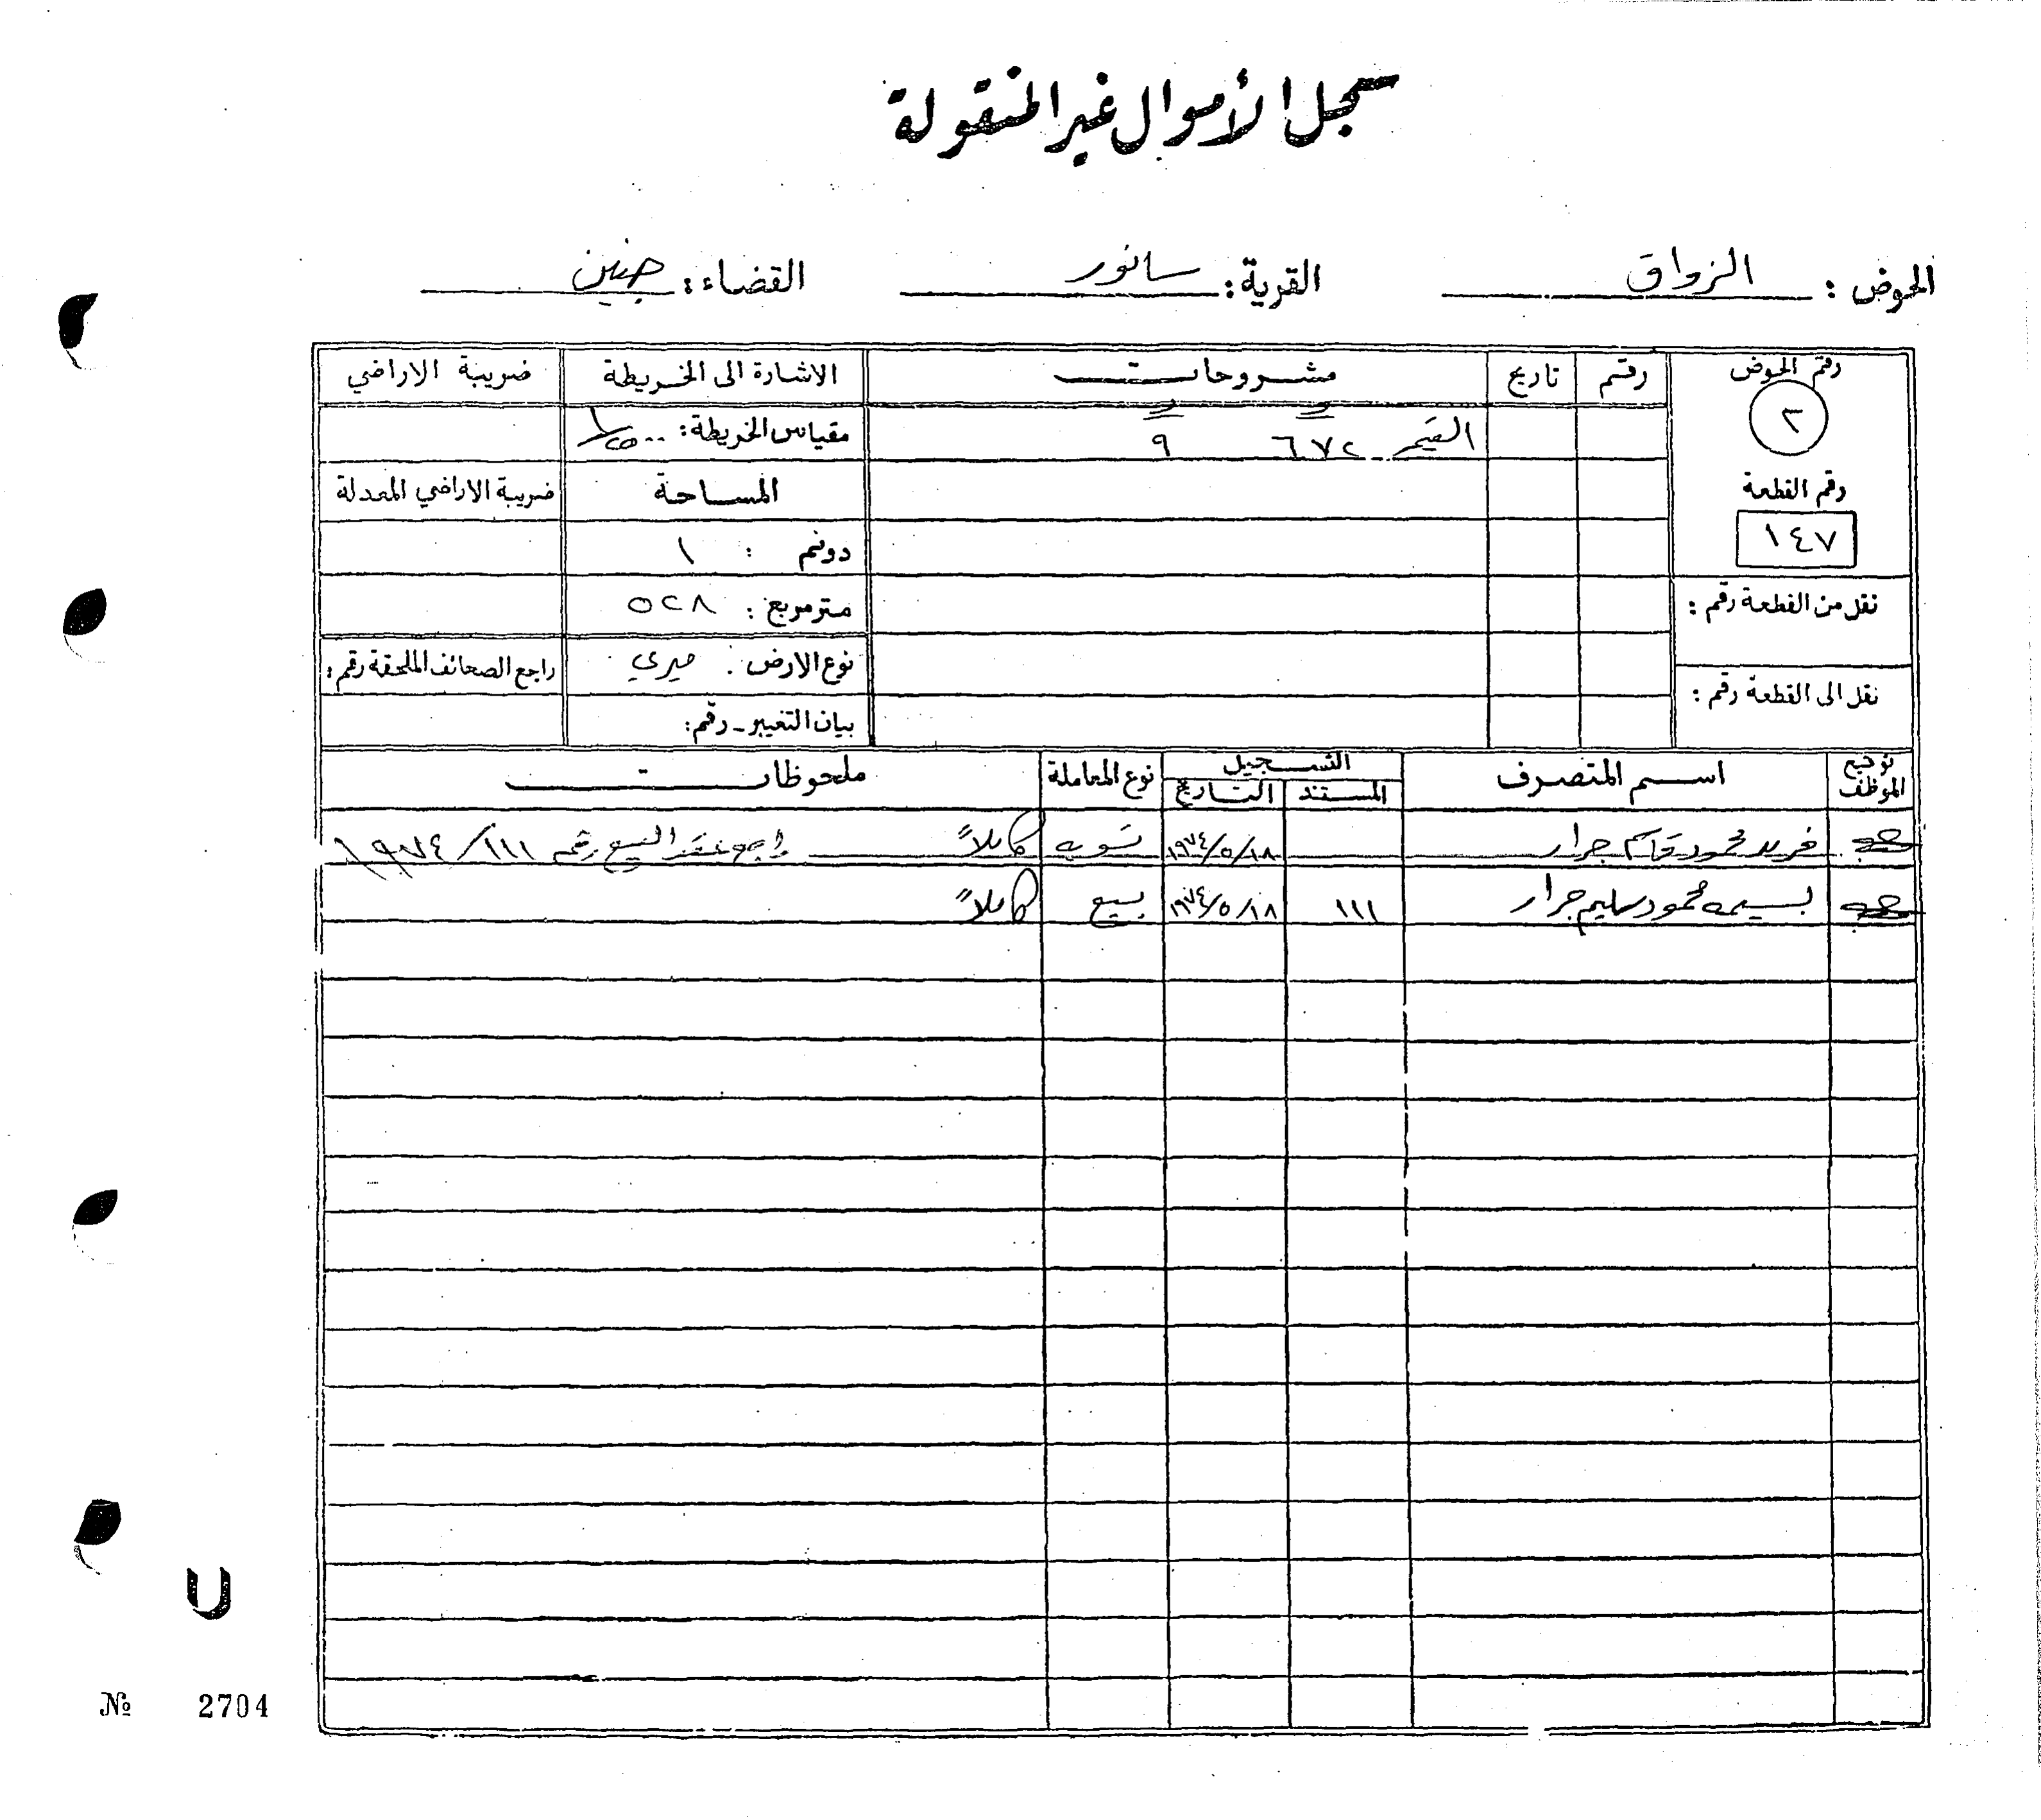 سجل الأموال غير المنقولة
الحوض : الزواق القرية : سانور القضاء : جنين
رقم الحوض رقم تاريخ مشروحات الاشارة الى الخريطة ضريبة الاراضي
٢ ٦٧٢ ٩ مقياس الخريطة : ١/٢٥٠٠
رقم القطعة المساحة ضريبة الاراضي المعدلة
١٤٧ دونم : ١
نقل من القطعة رقم : متر مربع : ٥٢٨
نوع الارض : ميري راجع الصحائف الملحقة رقم :
نقل الى القطعة رقم : بيان التغيير - رقم :
توقيع الموظف اسم المتصرف التسجيل نوع المعاملة ملحوظات
المستند التاريخ
فريد محمود قاسم جرار ١٩٧٤/٥/١٨ تسويه كاملاً راجع عقد البيع رقم ١١١/١٩٧٤
بسيمه محمود سليم جرار ١١١ ١٩٧٤/٥/١٨ بيع كاملاً
U
№ 2704